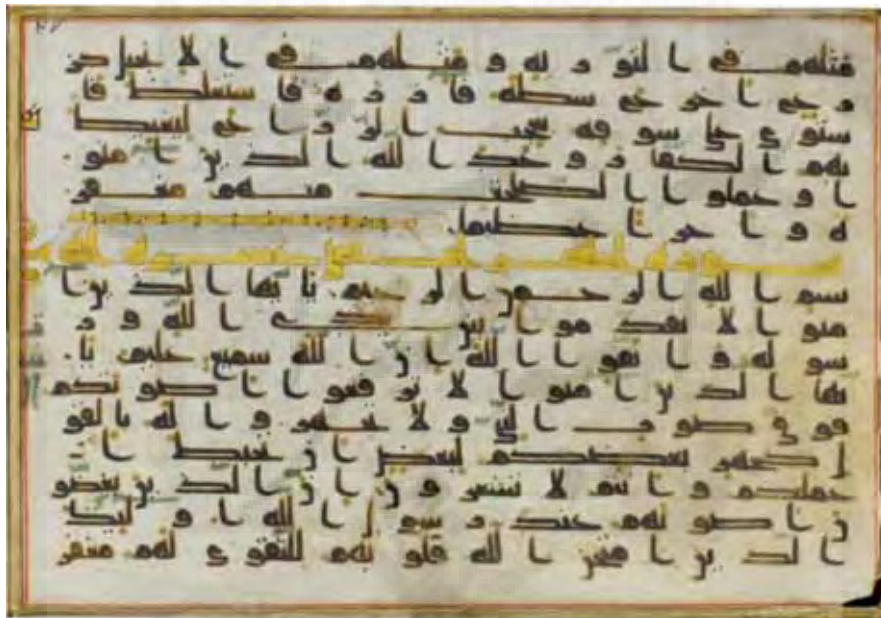 مثلهم في التورية ومثلهم في الانجيل كز
رع اخرج شطه فازره فاستغلظ فا
ستوى على سوقه يعجب الزراع ليغيظ
بهم الكفار وعد الله الذين امنو
ا وعملوا الصلحت منهم مغفر
ة واجرا عظيما
سورة
بسم الله الرحمن الرحيم يايها الذين ا
منوا لا تقدموا بين يدي الله ور
سوله واتقوا الله ان الله سميع عليم يا
يها الذين امنوا لا ترفعوا اصوتكم
فوق صوت النبي ولا تجهروا له بالقو
ل كجهر بعضكم لبعض ان تحبط ا
عملكم وانتم لا تشعرون ان الذين يغضو
ن اصوتهم عند رسول الله اوليك
الذين امتحن الله قلوبهم للتقوى لهم مغفر